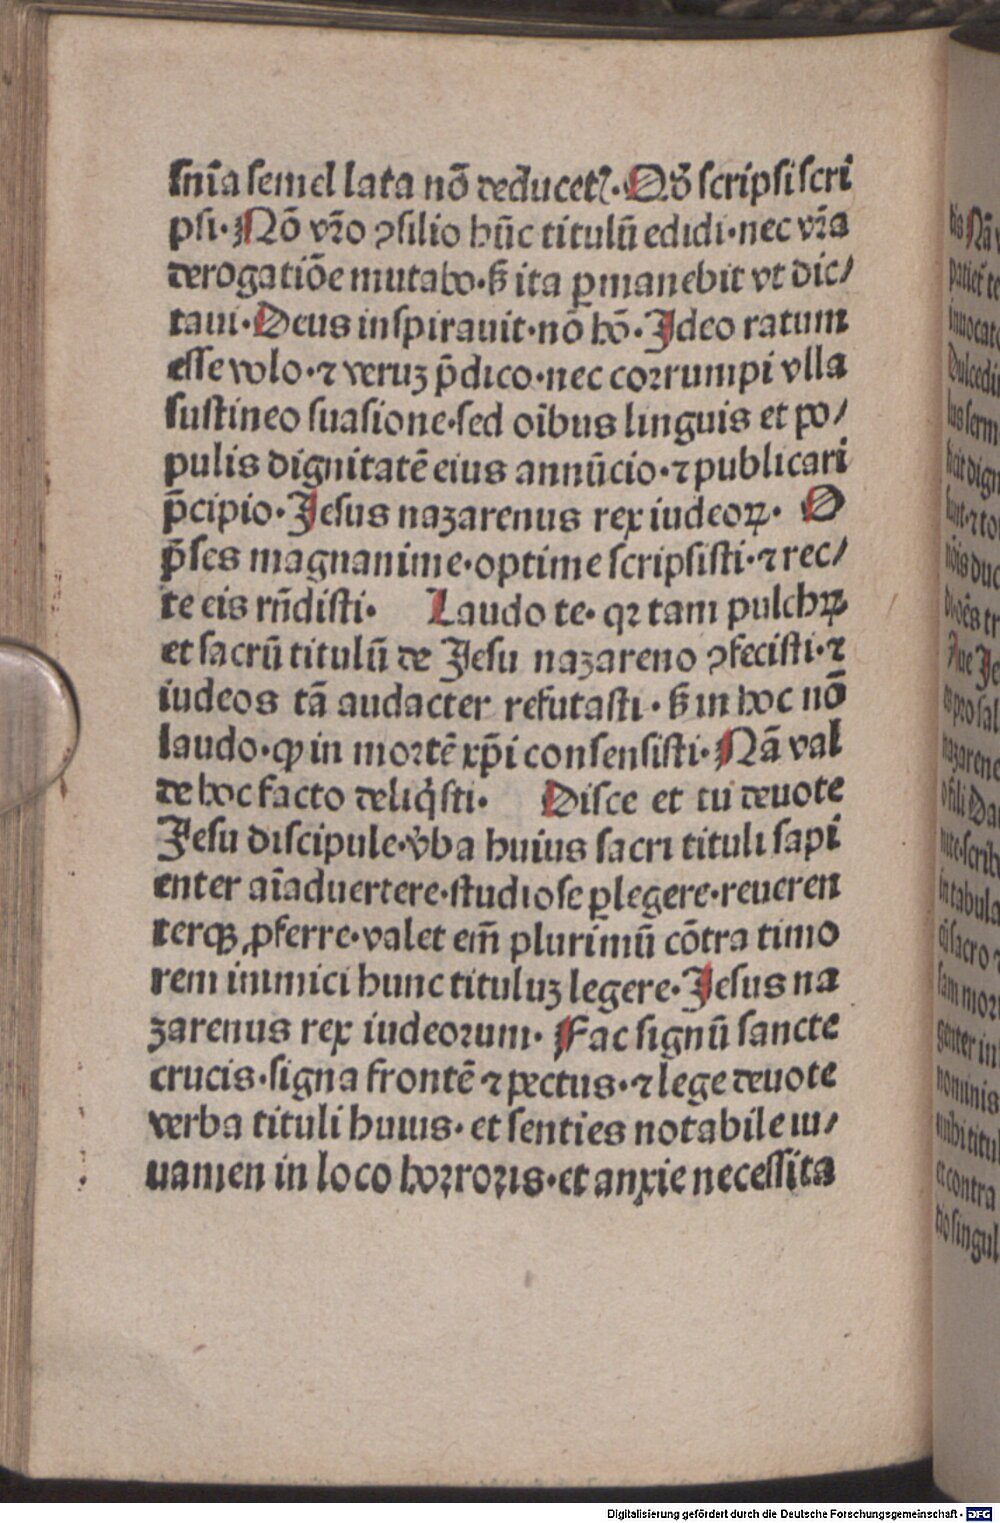 snīa semel lata nō deducetꝛ. Qd̕ scripsi scri
psi. Nō vr̄o ꝯsilio hūc titulū edidi. nec vr̄a
derogatiōe mutabo. ß ita ꝑmanebit vt dic/
taui. Deus inspirauit. nō hō. Ideo ratum
esse volo. ⁊ veruꝫ p̄dico. nec corrumpi vlla
sustineo suasione. sed oībus linguis et po/
pulis dignitatē eius annūcio. ⁊ publicari
p̄cipio. Jesus nazarenus rex iudeoꝝ. O
p̄ses magnanime. optime scripsisti. ⁊ rec/
te eis rn̄disti. Laudo te. qꝛ tam pulchꝝ
et sacrū titulū de Jesu nazareno ꝯfecisti. ⁊
iudeos tā audacter refutasti. ß in hoc nō
laudo. ꝙ in mortē xp̄i consensisti. Nā val
de hoc facto deliq̇sti. Disce et tu deuote
Jesu discipule. v̕ba huius sacri tituli sapi
enter aīaduertere. studiose ꝑlegere. reueren
terqꝫ ꝓferre. valet em̄ plurimū cōtra timo
rem inimici hunc tituluꝫ legere. Jesus na
zarenus rex iudeorum. Fac signū sancte
crucis. signa frontē ⁊ pectus. ⁊ lege deuote
verba tituli huius. et senties notabile iu/
uamen in loco horroris. et anxie necessita
Digitalisierung gefördert durch die Deutsche Forschungsgemeinschaft - DFG